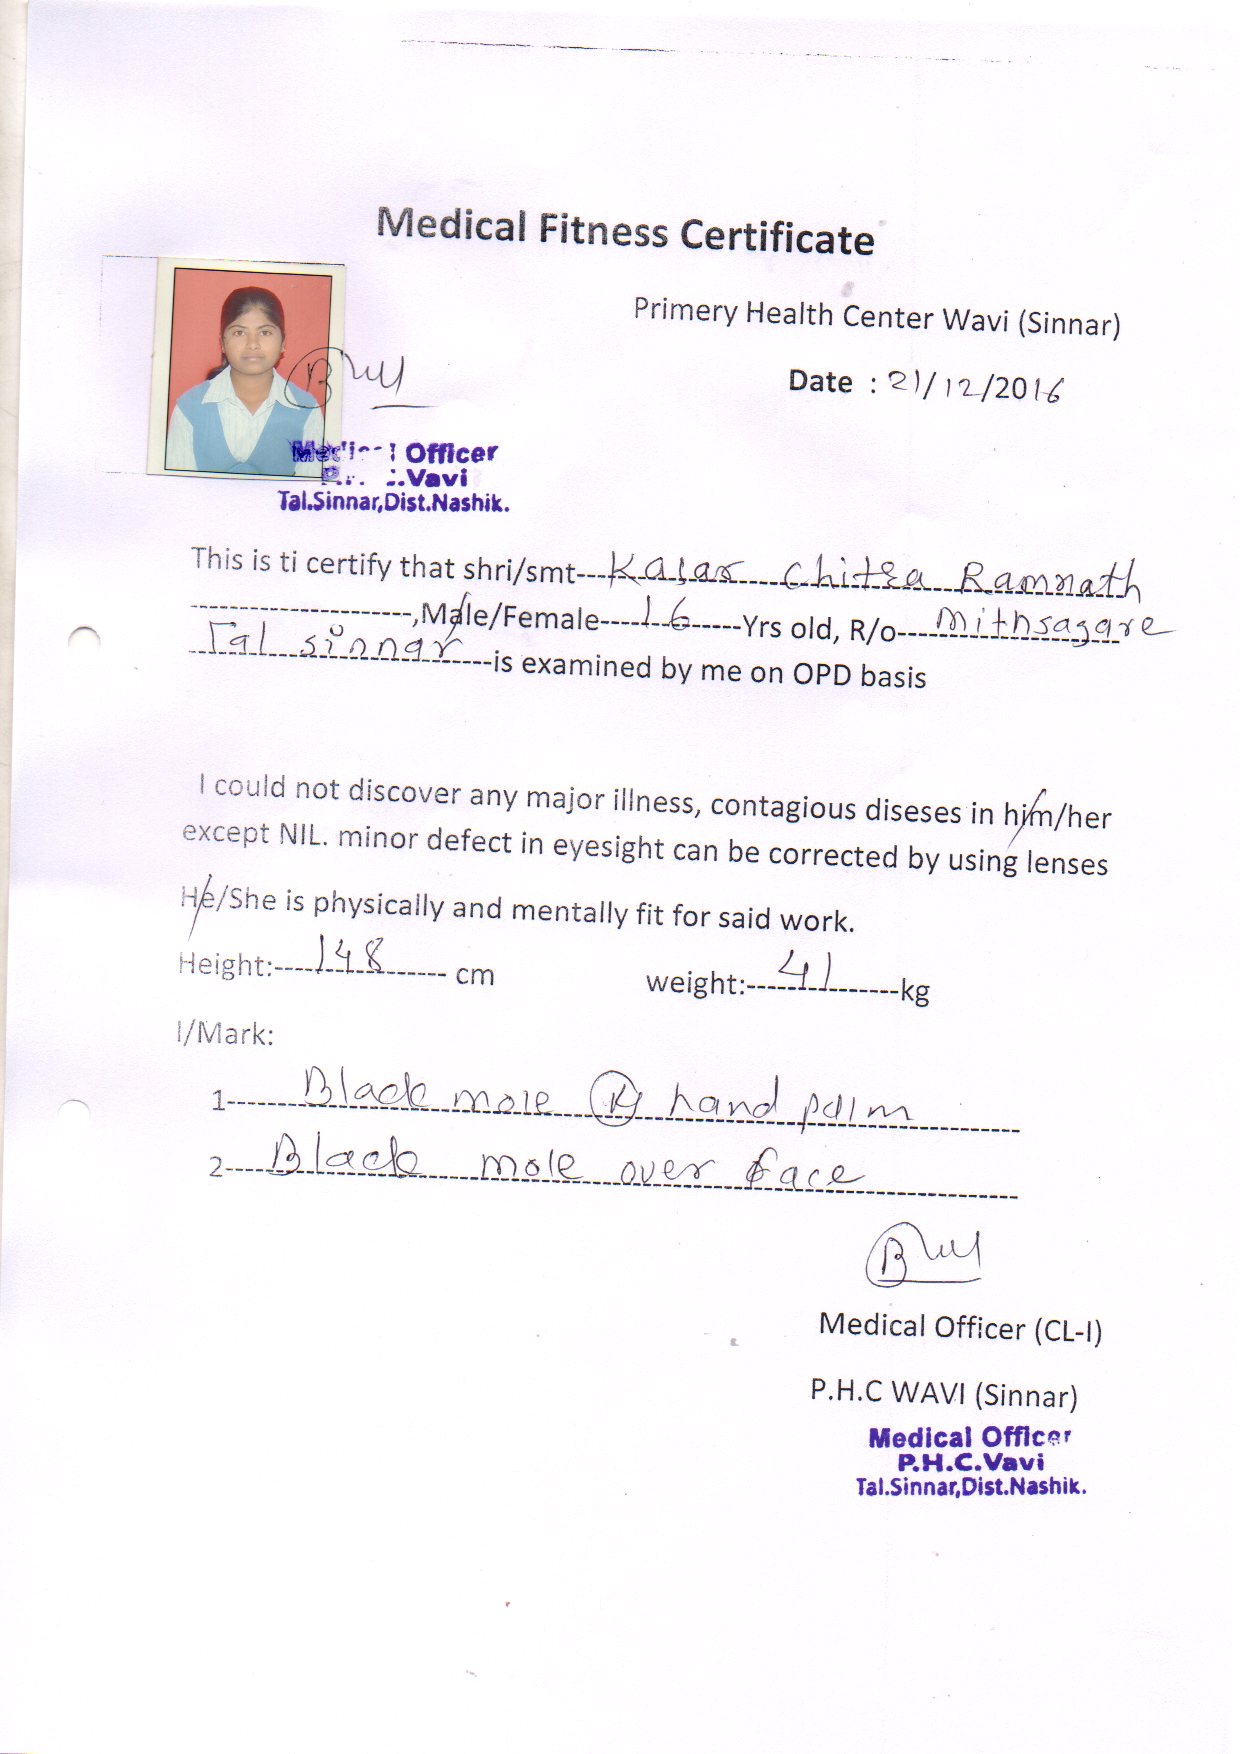 Medical Fitness Certificate
Primery Health Center Wavi (Sinnar)
Date : 21/12/2016
Medical Officer
P.H.C.Vavi
Tal.Sinnar,Dist.Nashik.
This is ti certify that shri/smt---Kasar Chitra Ramnath
----------------------,Male/Female----16-----Yrs old, R/o----Mithsagare
Tal sinnar-----is examined by me on OPD basis
I could not discover any major illness, contagious diseses in him/her
except NIL. minor defect in eyesight can be corrected by using lenses
He/She is physically and mentally fit for said work.
Height:----148------ cm weight:----41------kg
I/Mark:
1------Black mole (R) hand palm
2----Black mole over face
Medical Officer (CL-I)
P.H.C WAVI (Sinnar)
Medical Officer
P.H.C.Vavi
Tal.Sinnar,Dist.Nashik.